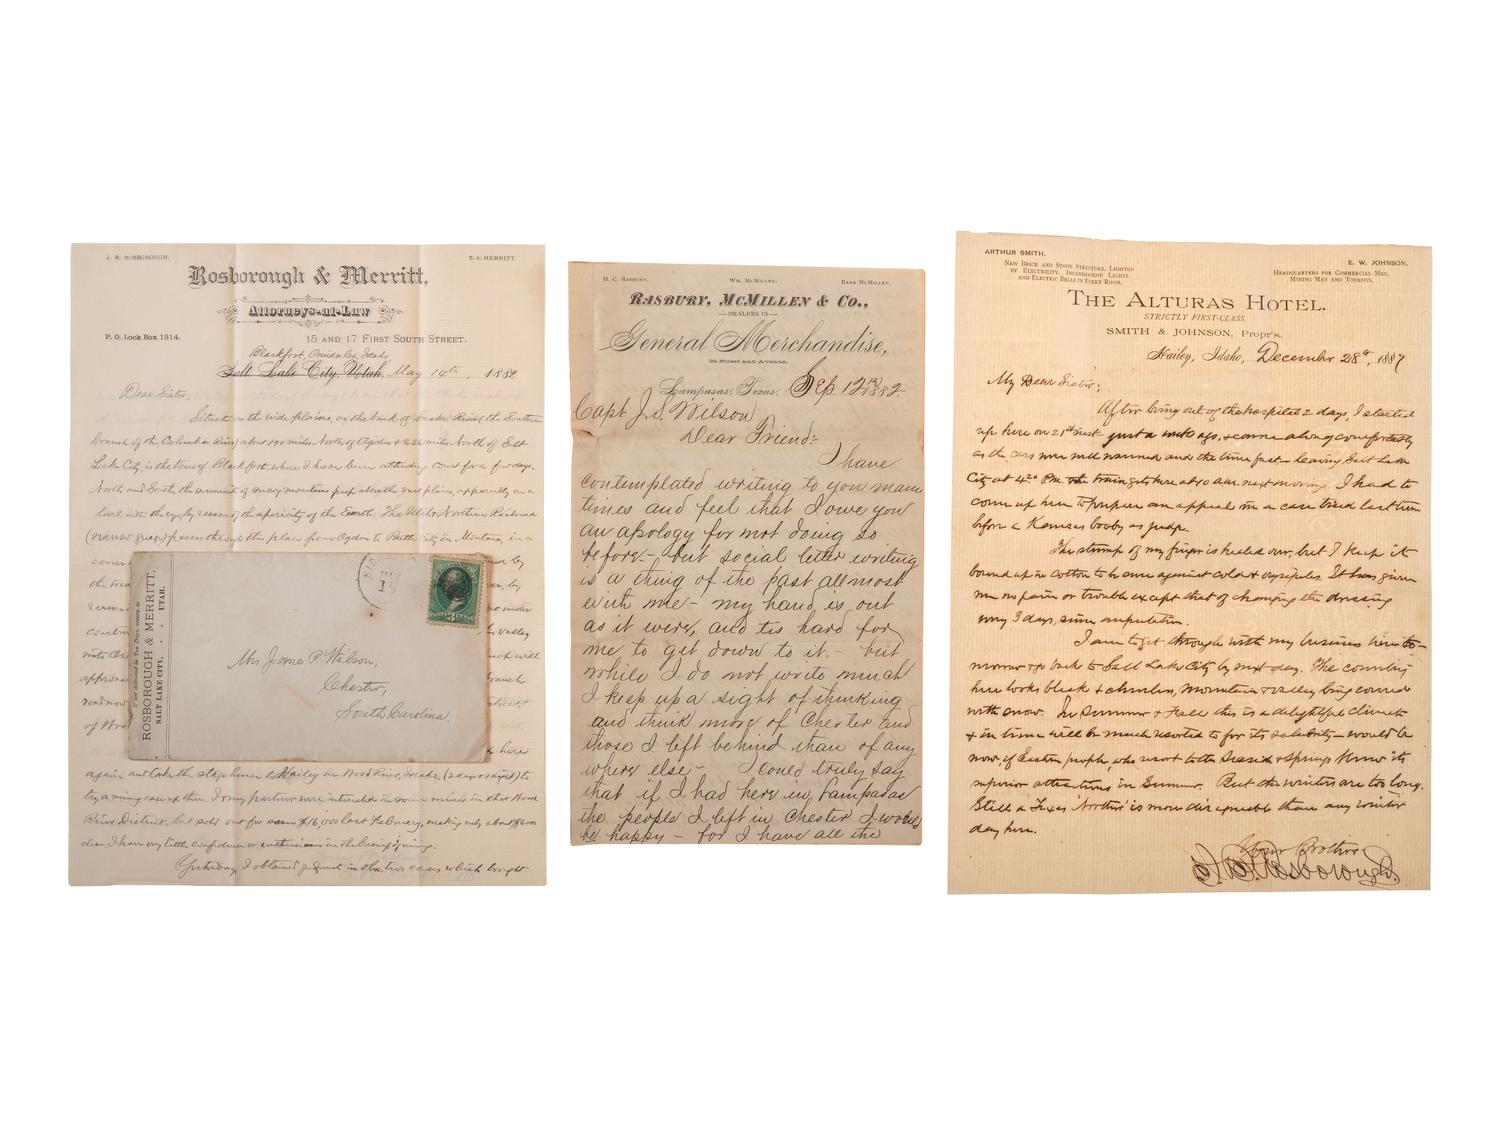 J. B. ROSBOROUGH.
S. A. MERRITT.
Rosborough & Merritt,
Attorneys-at-Law
P. O. Lock Box 1214.
15 AND 17 FIRST SOUTH STREET.
Blackfoot, Oneida Co, Idaho
Salt Lake City, Utah, May 14th, 1882
Dear Sister;
Situate on the wide plains, on the bank of Snake River (the Southern
branch of the Columbia River) about 190 miles North of Ogden & 226 miles North of Salt
Lake City, is the town of Blackfoot, where I have been attending court for a few days.
North and South, the summits of snowy mountains peep above the vast plains, apparently on a
level with the eye, by reason of the sphericity of the Earth. The Utah & Northern Railroad
(narrow guage) passes through the place from Ogden to Butte City in Montana, in a
again and take the stage hence to Hailey on Wood River, Idaho, (2 days & night) to
try a mining case there. I & my partner were interested in some mines in that Wood
River District, but sold out for some $16,000 last February, making only about $6000
clear. I have very little confidence or enthusiasm in the business of mining.
Yesterday I obtained judgment in the two cases which brought
ROSBOROUGH & MERRITT,
SALT LAKE CITY, UTAH.
Mrs Jane P. Wilson,
Chester,
South Carolina.
H. C. RASBURY.
WM. MCMILLEN.
RANE MCMILLEN.
RASBURY, MCMILLEN & CO.,
DEALERS IN
General Merchandise,
Street and Avenue,
Lampasas, Texas, Sep. 12th 1882.
Capt J. S. Wilson
Dear Friend:-
I have
contemplated writing to you many
times and feel that I owe you
an apology for not doing so
before - but social letter writing
is a thing of the past allmost
with me - my hand is out
as it were, and tis hard for
me to get down to it, - but
while I do not write much
I keep up a sight of thinking
and think more of Chester and
those I left behind than of any
where else - I could truly say
that if I had here in Lampasas
the people I left in Chester I would
be happy - for I have all the
ARTHUR SMITH.
E. W. JOHNSON.
NEW BRICK AND STONE STRUCTURE, LIGHTED
BY ELECTRICITY. INCANDESCENT LIGHTS
AND ELECTRIC BELLS IN EVERY ROOM.
HEADQUARTERS FOR COMMERCIAL MEN,
MINING MEN AND TOURISTS.
THE ALTURAS HOTEL.
STRICTLY FIRST-CLASS.
SMITH & JOHNSON, Propr's.
Hailey, Idaho, December 28th, 1887
My Dear Sister;
After being out of the hospital 2 days, I started
up here on 21st inst. just a week ago, & came along comfortably
as the cars were well warmed and the time fast - leaving Salt Lake
City at 4 P.M. the train gets here at 10 a.m. next morning. I had to
come up here to prepare an appeal in a case tried last term
before a Kansas booby as judge.
The stump of my finger is healed over, but I keep it
bound up in cotton to be sure against cold & erysipelas. It has given
me no pain or trouble except that of changing the dressing
every 3 days, since amputation.
I am to get through with my business here to-
morrow & go back to Salt Lake City by next day. The country
here looks bleak & cheerless, mountain & valley being covered
with snow. In Summer & Fall this is a delightful climate
& in time will be much resorted to for its salubrity - would be
now, if Eastern people, who resort to the Seaside & springs knew its
superior attractions in Summer. But the winters are too long.
Still a Texas Norther is more disagreeable than any winter
day here.
Your Brother,
J. B. Rosborough.